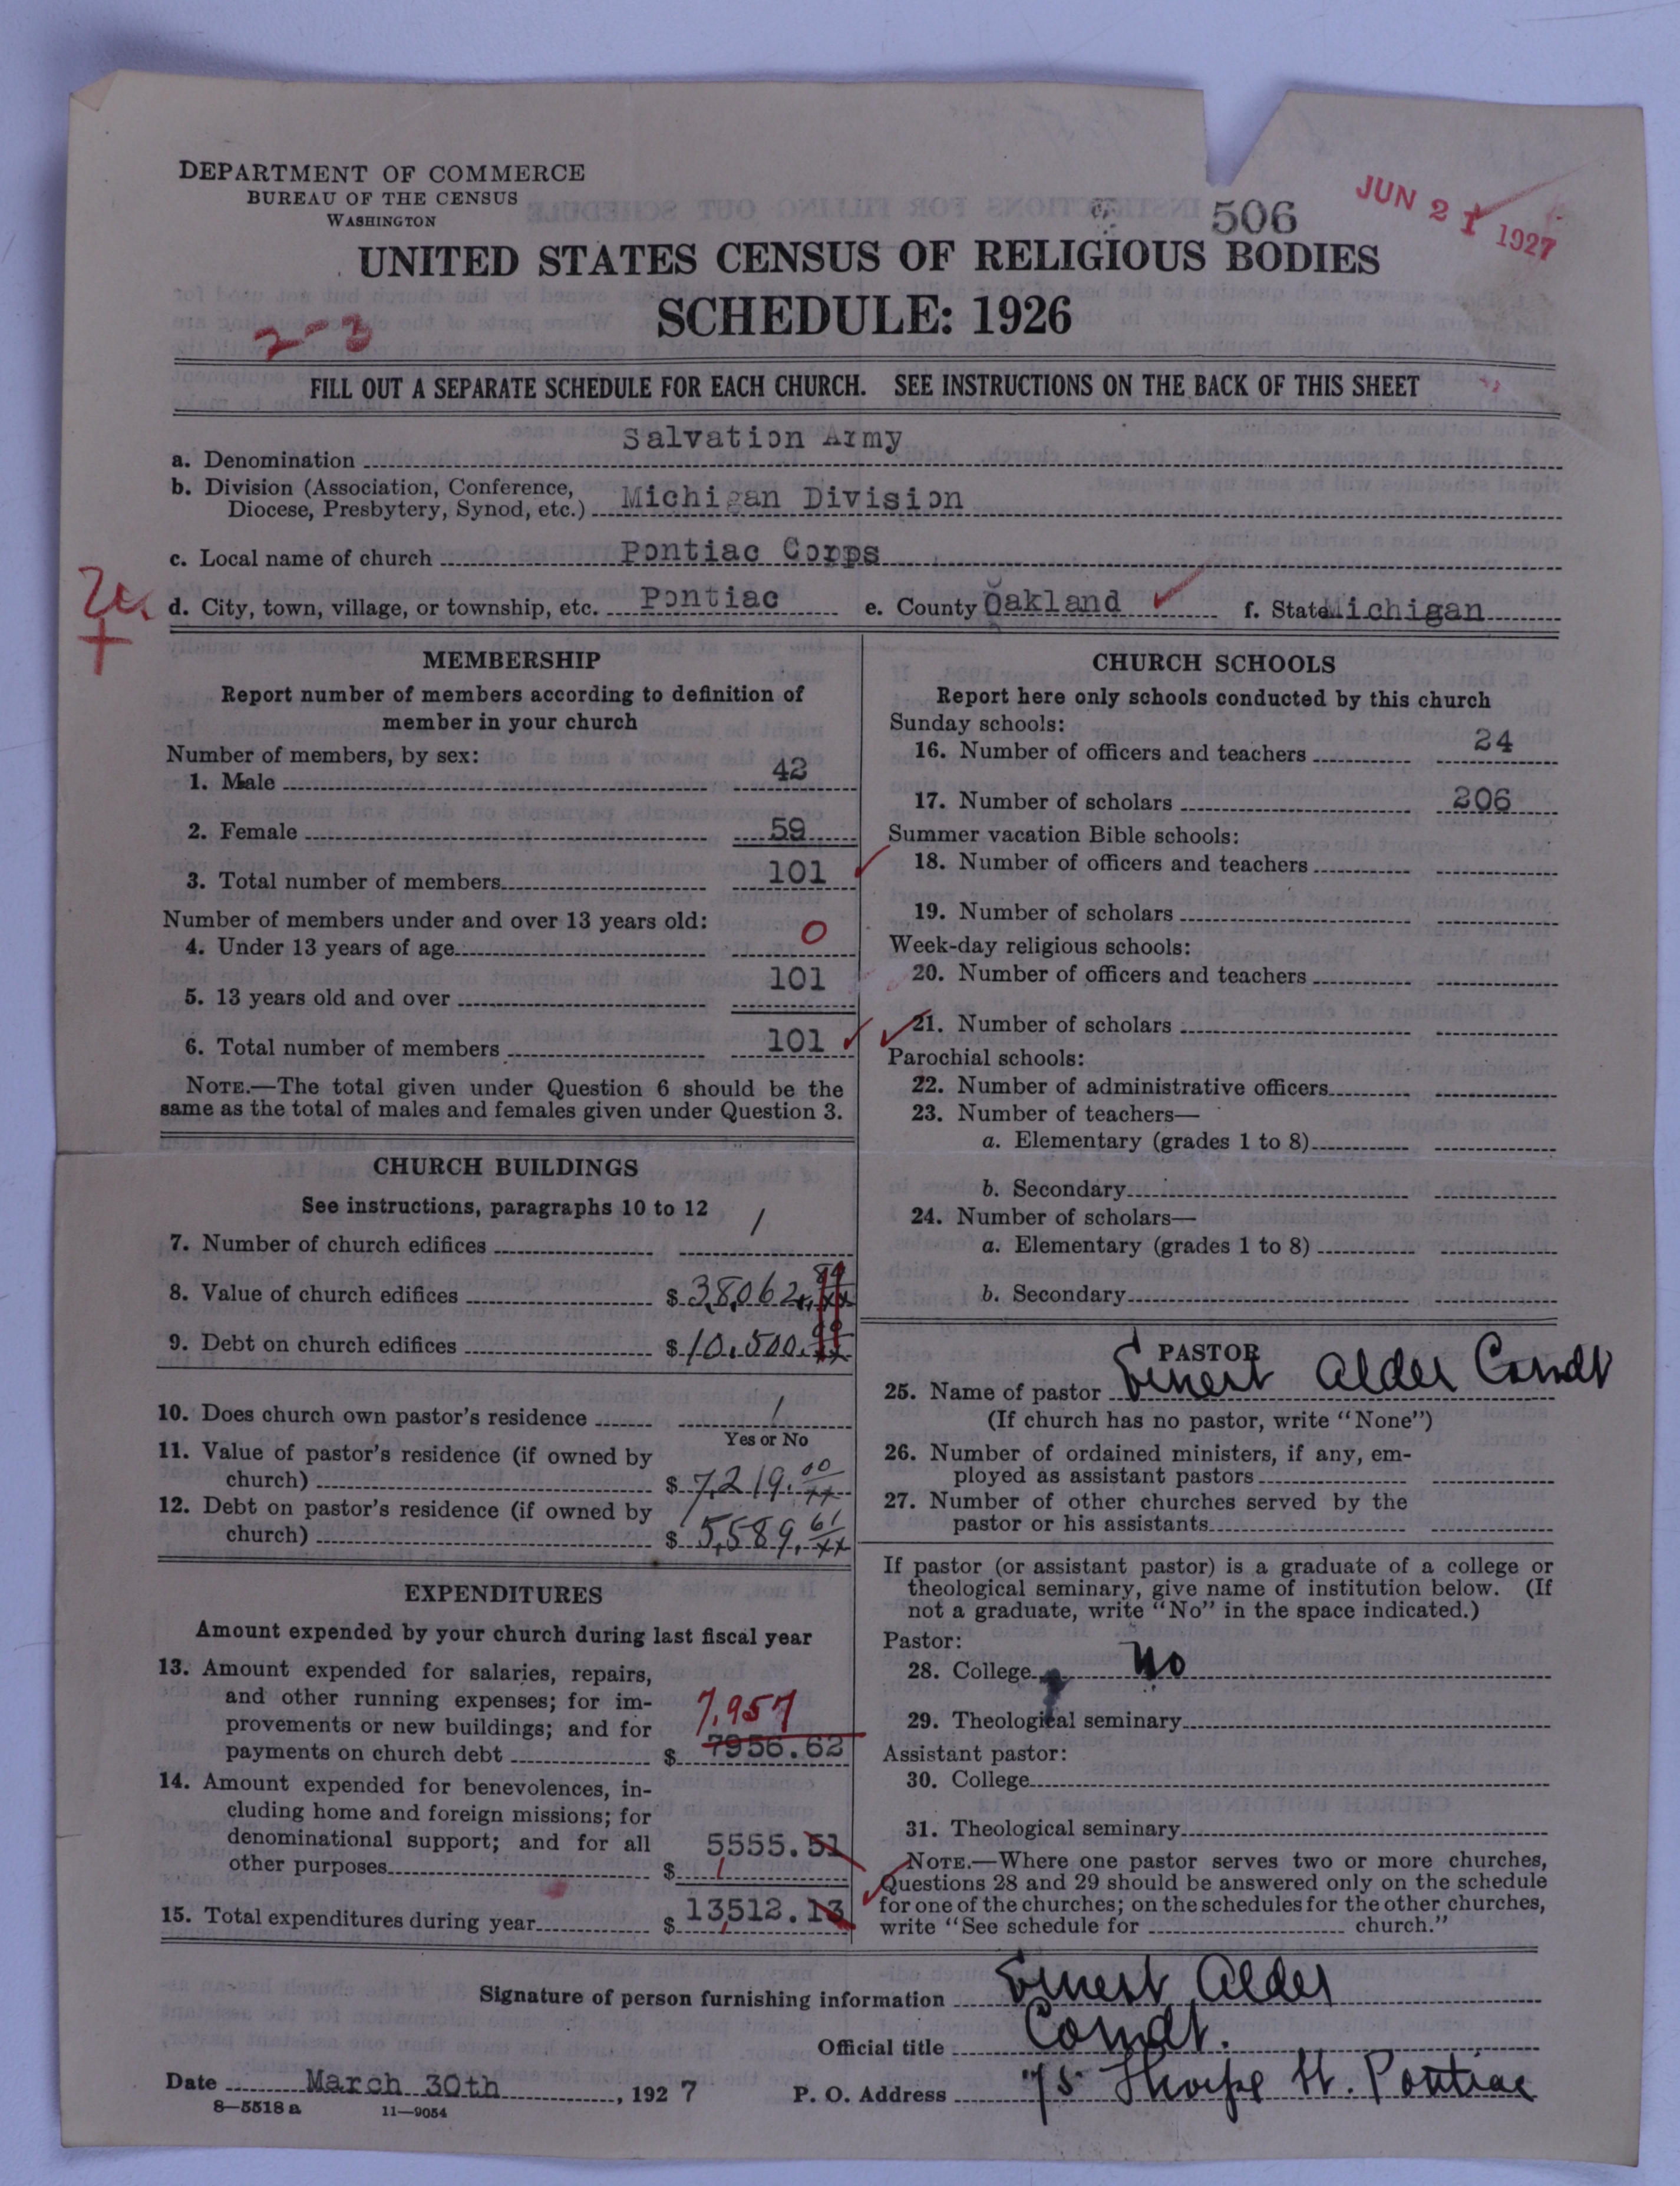 DEPARTMENT OF COMMERCE
BUREAU OF THE CENSUS
WASHINGTON
506
JUN 21 1927
UNITED STATES CENSUS OF RELIGIOUS BODIES
SCHEDULE: 1926
2-3
FILL OUT A SEPARATE SCHEDULE FOR EACH CHURCH. SEE INSTRUCTIONS ON THE BACK OF THIS SHEET
a. Denomination Salvation Army
b. Division (Association, Conference,
Diocese, Presbytery, Synod, etc.) Michigan Division
c. Local name of church Pontiac Corps
d. City, town, village, or township, etc. Pontiac e. County Oakland f. State Michigan
MEMBERSHIP
Report number of members according to definition of
member in your church
Number of members, by sex:
1. Male 42
2. Female 59
3. Total number of members 101
Number of members under and over 13 years old:
4. Under 13 years of age 0
5. 13 years old and over 101
6. Total number of members 101
NOTE.—The total given under Question 6 should be the
same as the total of males and females given under Question 3.
CHURCH BUILDINGS
See instructions, paragraphs 10 to 12
7. Number of church edifices 1
8. Value of church edifices $ 38,062.
9. Debt on church edifices $ 10,500.
10. Does church own pastor's residence 1
Yes or No
11. Value of pastor's residence (if owned by
church) $ 7,219.00 xx
12. Debt on pastor's residence (if owned by
church) $ 5,589.61 xx
EXPENDITURES
Amount expended by your church during last fiscal year
13. Amount expended for salaries, repairs,
and other running expenses; for im-
provements or new buildings; and for 7,957
payments on church debt $ 7956.62
14. Amount expended for benevolences, in-
cluding home and foreign missions; for
denominational support; and for all 5555.51
other purposes $
15. Total expenditures during year $ 13,512.13
CHURCH SCHOOLS
Report here only schools conducted by this church
Sunday schools:
16. Number of officers and teachers 24
17. Number of scholars 206
Summer vacation Bible schools:
18. Number of officers and teachers
19. Number of scholars
Week-day religious schools:
20. Number of officers and teachers
21. Number of scholars
Parochial schools:
22. Number of administrative officers
23. Number of teachers—
a. Elementary (grades 1 to 8)
b. Secondary
24. Number of scholars—
a. Elementary (grades 1 to 8)
b. Secondary
PASTOR
25. Name of pastor Ernest Alder Comdt
(If church has no pastor, write "None")
26. Number of ordained ministers, if any, em-
ployed as assistant pastors
27. Number of other churches served by the
pastor or his assistants
If pastor (or assistant pastor) is a graduate of a college or
theological seminary, give name of institution below. (If
not a graduate, write "No" in the space indicated.)
Pastor:
28. College No
29. Theological seminary
Assistant pastor:
30. College
31. Theological seminary
NOTE.—Where one pastor serves two or more churches,
Questions 28 and 29 should be answered only on the schedule
for one of the churches; on the schedules for the other churches,
write "See schedule for church."
Signature of person furnishing information Ernest Alder
Official title Comdt.
Date March 30th, 1927 P. O. Address 75 Thorpe St. Pontiac
8—5518 a 11—9054